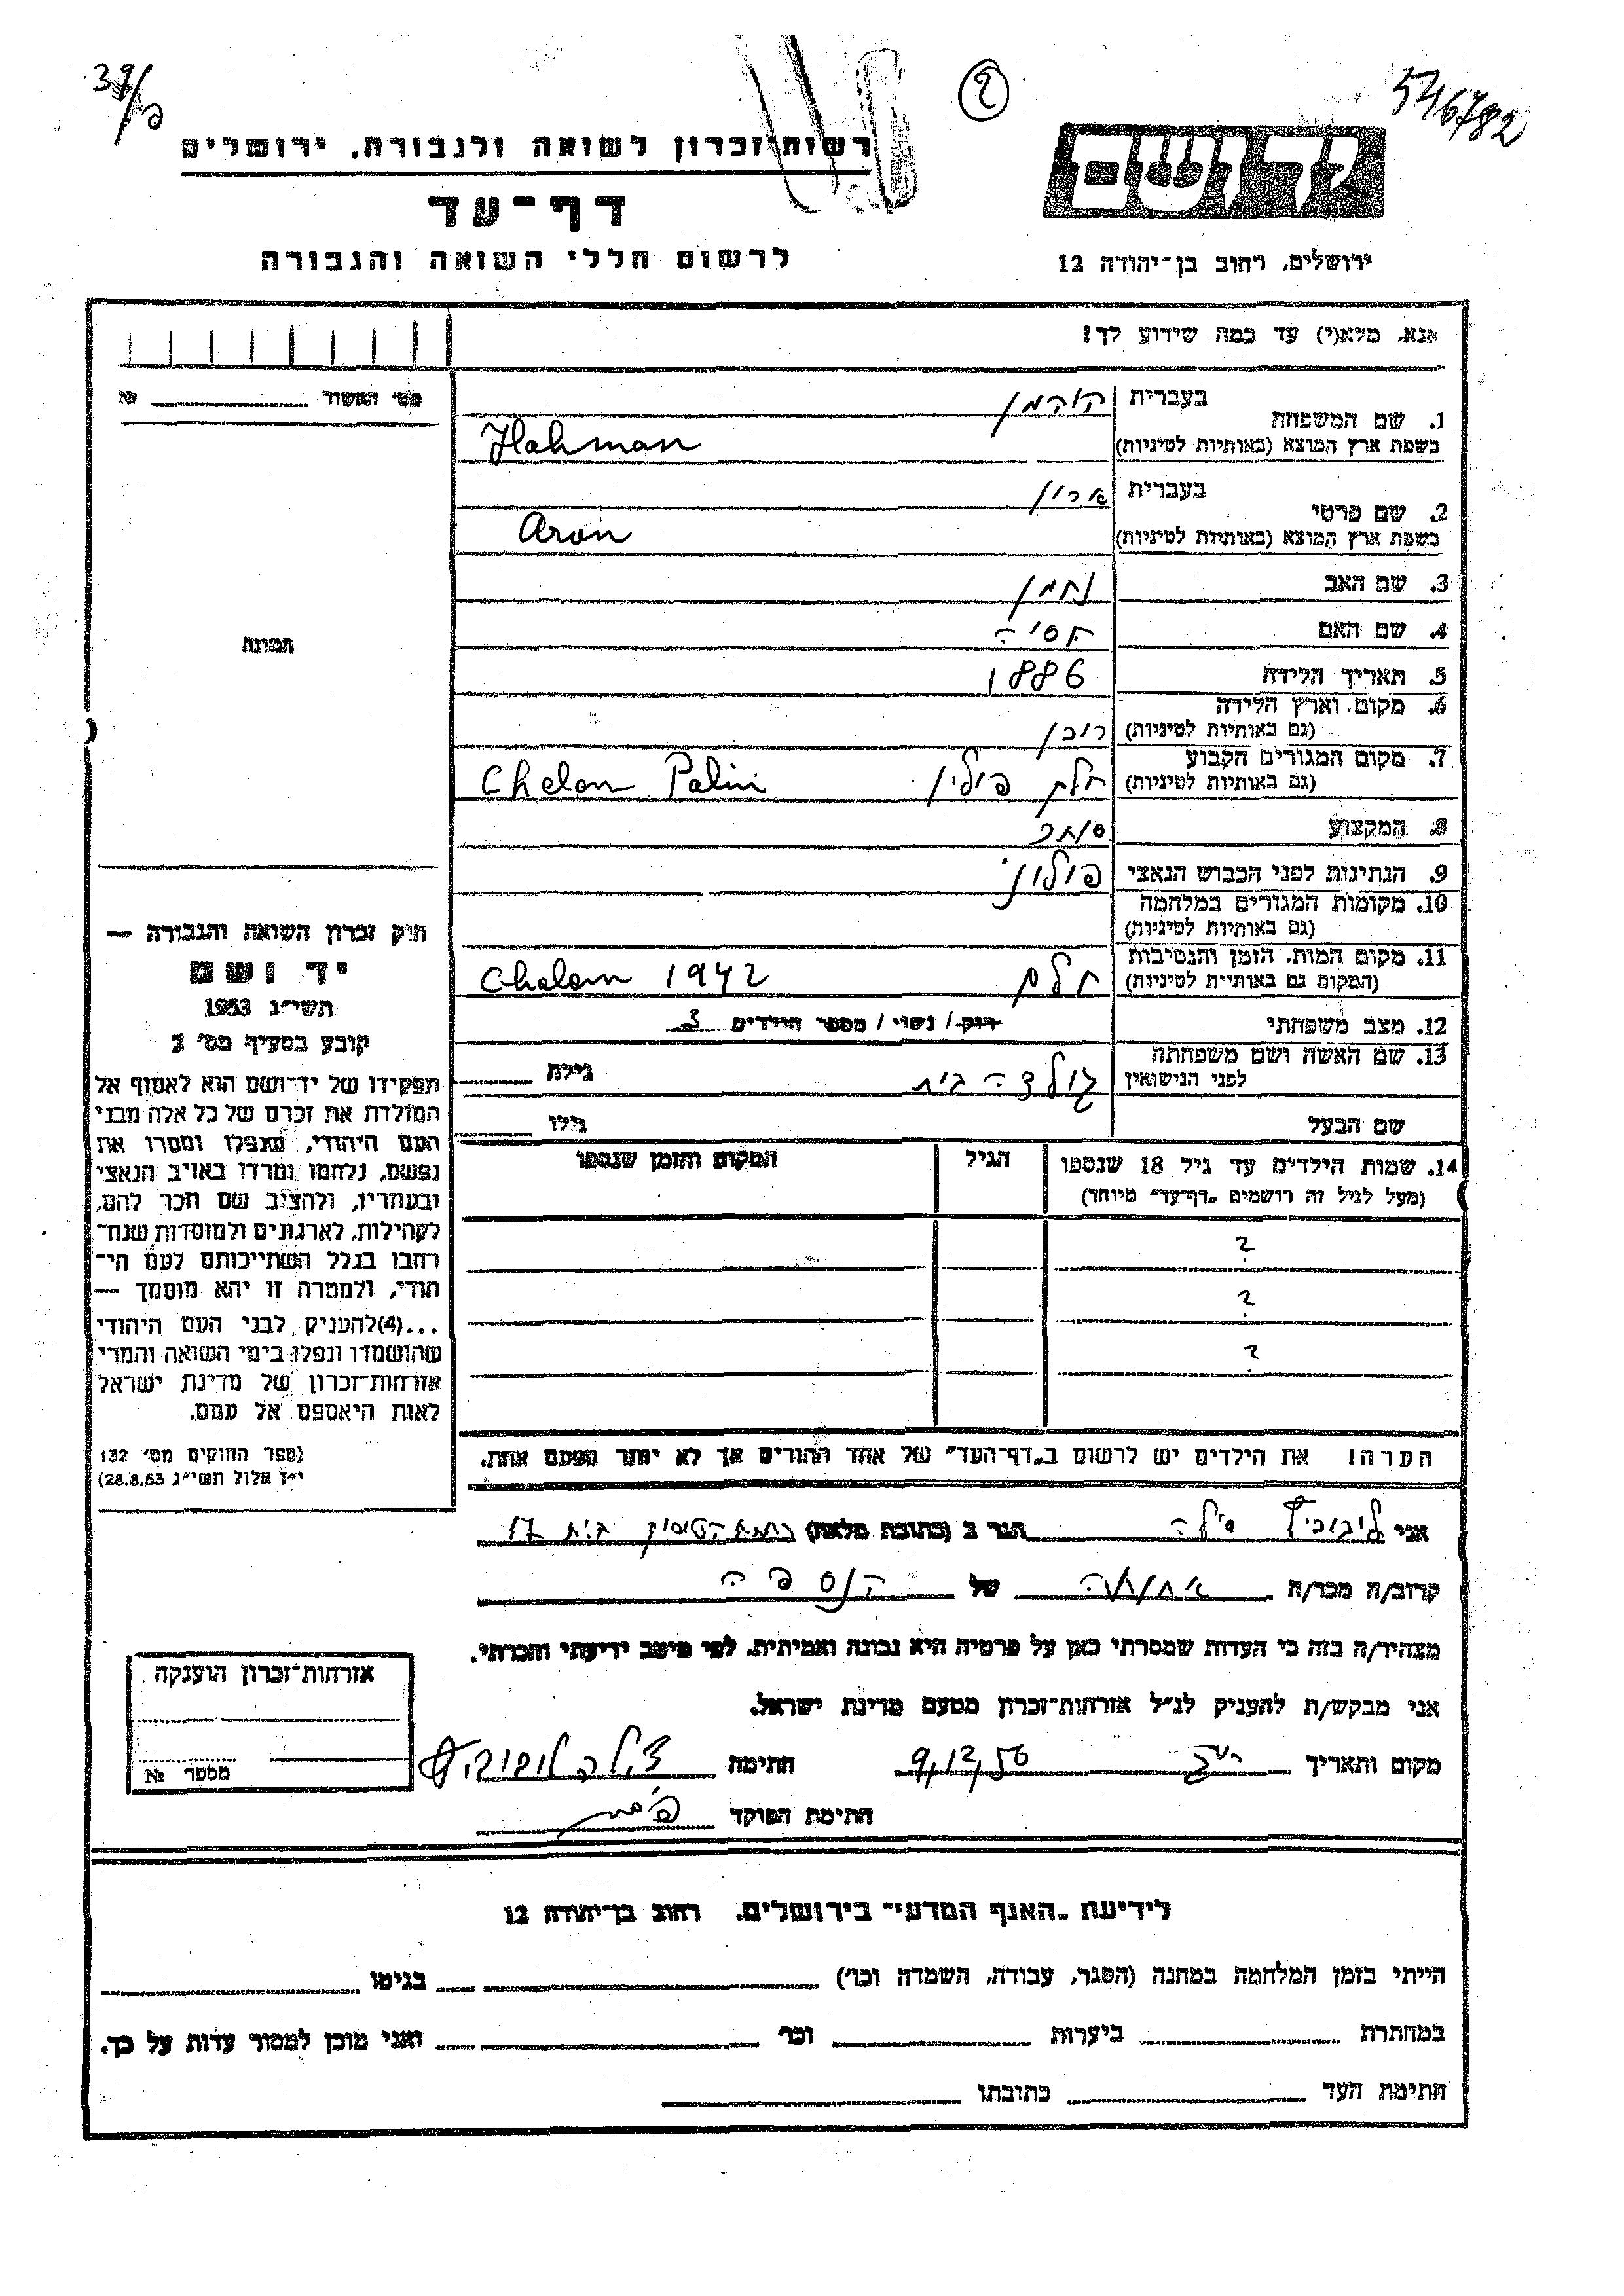 39/a
2
546782
רשות־זכרון לשואה ולגבורה, ירושלים
דף־עד
לרשום חללי השואה והגבורה
יד ושם
ירושלים, רחוב בן־יהודה 12
אנא, מלא(י) עד כמה שידוע לך!
מס׳ האשור № 
1. שם המשפחה
בעברית קוהמן
בשפת ארץ המוצא (באותיות לטיניות) Hahman
2. שם פרטי
בעברית ארון
בשפת ארץ המוצא (באותיות לטיניות) Aron
3. שם האב נחמן
4. שם האם חסיה
5. תאריך הלידה 1886
6. מקום וארץ הלידה
(גם באותיות לטיניות) רובן
7. מקום המגורים הקבוע
(גם באותיות לטיניות) חלם פולין Chelom Polin
8. המקצוע סוחר
9. הנתינות לפני הכבוש הנאצי פולוני
10. מקומות המגורים במלחמה
(גם באותיות לטיניות)
11. מקום המות, הזמן והנסיבות
(המקום גם באותיות לטיניות) חלם Chelom 1942
12. מצב משפחתי רווק / נשוי / מספר הילדים 3
13. שם האשה ושם משפחתה
לפני הנישואין גולדה בית גילה
שם הבעל גילו
14. שמות הילדים עד גיל 18 שנספו הגיל המקום והזמן שנספו
(מעל לגיל זה רושמים „דף־עד״ מיוחד)
?
?
?
הערה! את הילדים יש לרשום ב„דף־העד״ של אחד ההורים אך לא יותר מפעם אחת.
תמונה
חוק זכרון השואה והגבורה —
יד ושם
תשי״ג 1953
קובע בסעיף מס׳ 2
תפקידו של יד־ושם הוא לאסוף אל
המולדת את זכרם של כל אלה מבני
העם היהודי, שנפלו ומסרו את
נפשם, נלחמו ומרדו באויב הנאצי
ובעוזריו, ולהציב שם וזכר להם,
לקהילות, לארגונים ולמוסדות שנח־
רבו בגלל השתייכותם לעם הי־
הודי, ולמטרה זו יהא מוסמך —
...(4) להעניק לבני העם היהודי
שהושמדו ונפלו בימי השואה והמרי
אזרחות־זכרון של מדינת ישראל
לאות היאספם אל עמם.
(ספר החוקים מס׳ 132
י״ז אלול תשי״ג 28.8.53)
אני ליבוביץ צילה הגר ב (כתובת מלאה) בית 17
קרוב/ה מכר/ה אחותה של הנספה
מצהיר/ה בזה כי העדות שמסרתי כאן על פרטיה היא נכונה ואמיתית, לפי מיטב ידיעתי והכרתי.
אני מבקש/ת להעניק לנ״ל אזרחות־זכרון מטעם מדינת ישראל.
מקום ותאריך 9,12,56 חתימה צילה ליבוביץ
חתימת הפוקד
אזרחות־זכרון הוענקה
מספר №
לידיעת „האגף המדעי״ בירושלים, רחוב בן־יהודה 12
הייתי בזמן המלחמה במחנה (הסגר, עבודה, השמדה וכו׳) בגיטו
במחתרת ביערות וכו׳ ואני מוכן למסור עדות על כך.
חתימת העד כתובתו